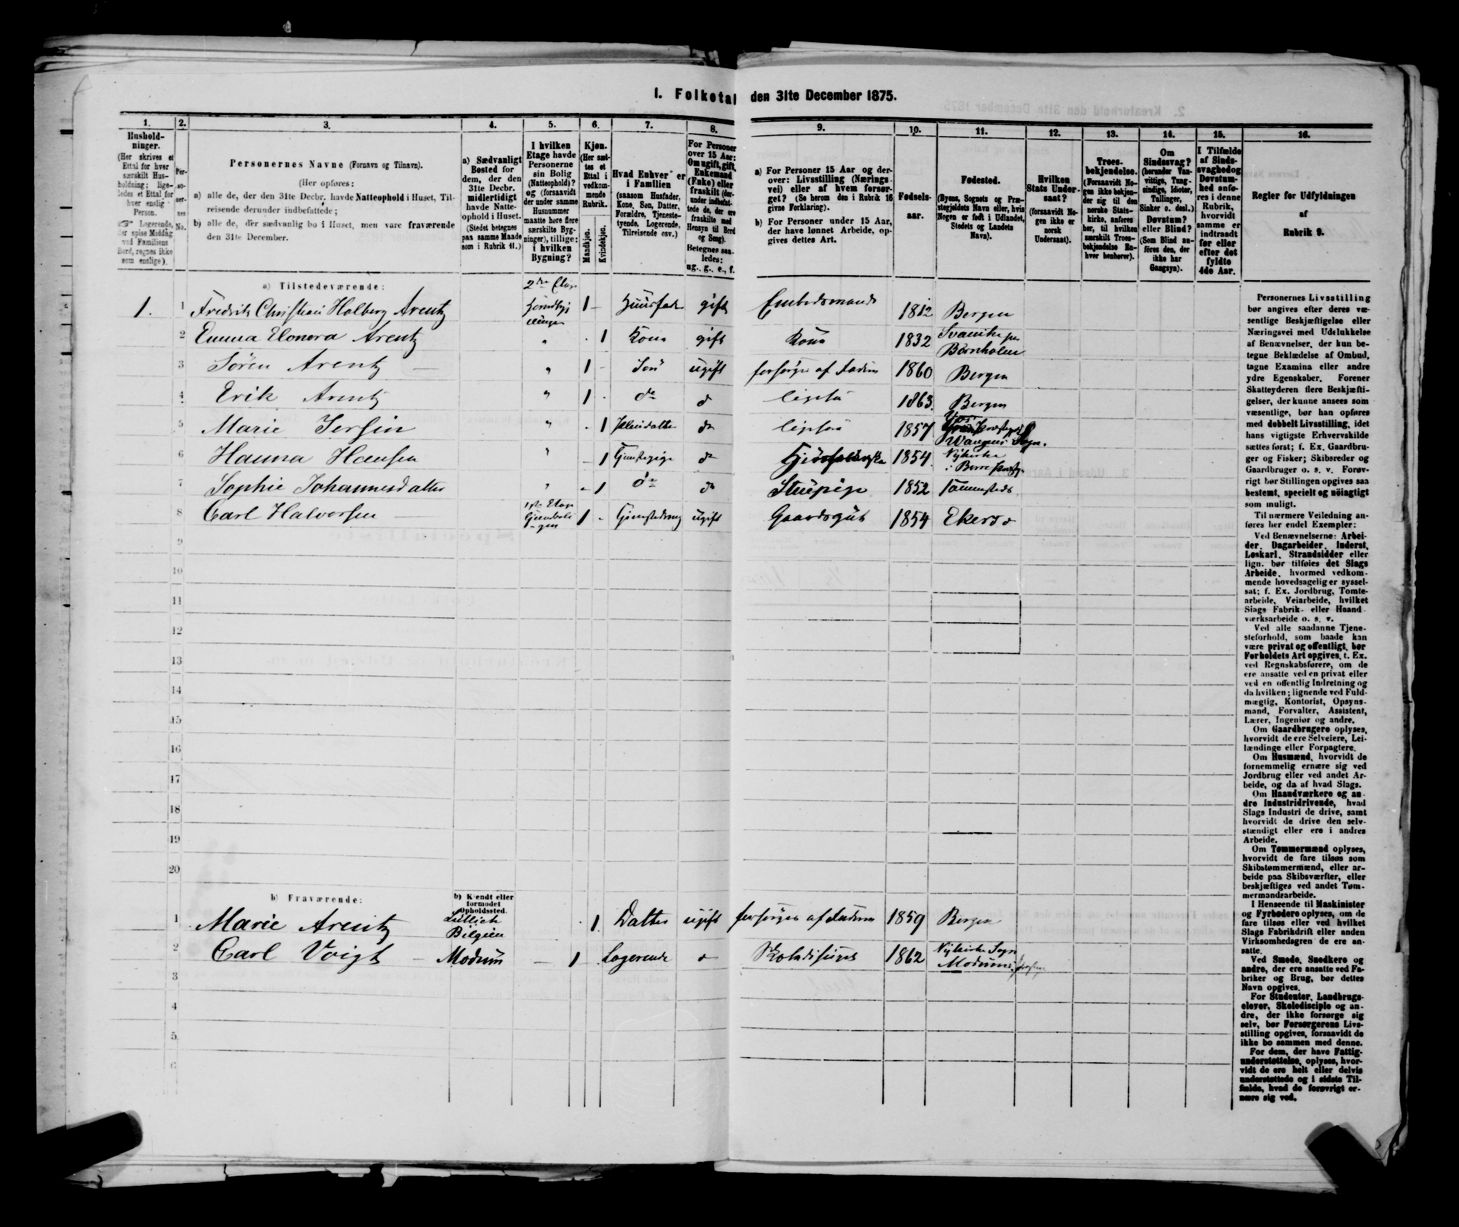 I. Folketal den 31te December 1875.
1.
Hushold-
ninger.
(Her skrives et
Ettal for hver
særskilt Hus-
holdning; lige-
ledes et Ettal for
hver enslig
Person.
Logerende,
der spise Middag
ved Familiens
Bord, regnes ikke
som enslige).
2.
Per-
so-
ner-
nes
No.
3.
Personernes Navne (Fornavn og Tilnavn).
(Her opføres:
a) alle de, der den 31te Decbr. havde Natteophold i Huset, Til-
reisende derunder indbefattede;
b) alle de, der sædvanlig bo i Huset, men vare fraværende
den 31te December.
4.
a) Sædvanligt
Bosted for
dem, der den
31te Decbr.
midlertidigt
havde Natte-
ophold i Huset.
(Stedet betegnes
paa samme Maade
som i Rubrik 11.)
5.
I hvilken
Etage havde
Personerne
sin Bolig
(Natteophold)?
og (forsaavidt
der under samme
Husnummer
maatte høre flere
særskilte Byg-
ninger), tillige:
i hvilken
Bygning?
6.
Kjøn.
(Her sæt-
tes et
Ettal i
vedkom-
mende
Rubrik.
Mandkjøn.
Kvindekjøn.
7.
Hvad Enhver er
i Familien
(saasom Husfader,
Kone, Søn, Datter,
Forældre, Tjeneste-
tyende, Logerende,
Tilreisende osv.)
8.
For Personer
over 15 Aar:
Om ugift, gift,
Enkemand
(Enke) eller
fraskilt (der-
under indbefat-
tede de, der ere
fraskilte med
Hensyn til Bord
og Seng).
Betegnes saa-
ledes:
ug., g., e., f.
9.
a) For Personer 15 Aar og der-
over: Livsstilling (Nærings-
vei) eller af hvem forsør-
get? (Se herom den i Rubrik 16
givne Forklaring).
b) For Personer under 15 Aar,
der have lønnet Arbeide, op-
gives dettes Art.
10.
Fødsels-
aar.
11.
Fødested.
(Byens, Sognets og Præ-
stegjeldets Navn eller, hvis
Nogen er født i Udlandet,
Stedets og Landets
Navn).
12.
Hvilken
Stats Under-
saat?
(forsaavidt No-
gen ikke er
norsk
Undersaat).
13.
Troes-
bekjendelse.
(Forsaavidt No-
gen ikke bekjen-
der sig til den
norske Stats-
kirke, anføres
her, til hvilken
særskilt Troes-
bekjendelse En-
hver henhører).
14.
Om
Sindssvag?
(herunder Van-
vittige, Tung-
sindige, Idioter,
Tullinger,
Sinker o. desl.)
Døvstum?
eller Blind?
(Som Blind an-
føres den, der
ikke har
Gangsyn).
15.
I Tilfælde
af Sinds-
svaghed og
Døvstum-
hed anfø-
res i denne
Rubrik,
hvorvidt
samme er
indtraadt
før eller
efter det
fyldte
4de Aar.
16.
Regler for Udfyldningen
af
Rubrik 9.
a) Tilstedeværende:
1. 1 Fredrik Christian Holberg Arentz 2den Etage 1 Huusfader gift Embedsmand 1812 Bergen
2 Emma Elonora Arentz " 1 Kone gift Kone 1832 Svanike paa Bornholm
3 Søren Arentz " 1 Søn ugift forsørges af Faderen 1860 Bergen
4 Erik Arentz " 1 do do ligesaa 1863 Bergen
5 Marie Iersin " do ligesaa 1857
6 Hanna Hansen " 1 Tjenestepige do 1854 Nykirke i Borre
7 Sophie Johannesdatter " 1 do do Stuepige 1852
8 Carl Halvorsen 1ste Etage 1 ugift Gaardsgut 1854 Ekersø
9
10
11
12
13
14
15
16
17
18
19
20
b) Fraværende:
b) Kjendt eller
formodet
Opholdssted.
1 Marie Arentz Belgien 1 Datter ugift forsørges af Faderen 1859 Bergen
2 Carl Voigt Modum 1 Logerende do 1862 Nykirke Sogn Modums
3
4
5
6
Personernes Livsstilling
bør angives efter deres væ-
sentlige Beskjæftigelse eller
Næringsvei med Udelukkelse
af Benævnelser, der kun be-
tegne Beklædelse af Ombud,
tagne Examina eller andre
ydre Egenskaber. Forener
Skatteyderen flere Beskjæfti-
gelser, der kunne ansees som
væsentlige, bør han opføres
med dobbelt Livsstilling, idet
hans vigtigste Erhvervskilde
sættes først; f. Ex. Gaardbru-
ger og Fisker; Skibsreder og
Gaardbruger o. s. v. Forøv-
rigt bør Stillingen opgives saa
bestemt, specielt og nøiagtigt
som muligt.
Til nærmere Veiledning an-
føres her endel Exempler:
Ved Benævnelserne: Arbei-
der, Dagarbeider, Inderst,
Løskarl, Strandsidder eller
lign. bør tilføies det Slags
Arbeide, hvormed vedkom-
mende hovedsagelig er syssel-
sat; f. Ex. Jordbrug, Tomte-
arbeide, Veiarbeide, hvilket
Slags Fabrik- eller Haand
værksarbeide o. s. v.
Ved alle saadanne Tjene-
steforhold, som baade kan
være privat og offentligt, bør
Forholdets Art opgives, f. Ex.
ved Regnskabsførere, om de
ere ansatte ved en privat eller
ved en offentlig Indretning og
da hvilken; lignende ved Fuld-
mægtig, Kontorist, Opsyns-
mand, Forvalter, Assistent,
Lærer, Ingeniør og andre.
Om Gaardbrugere oplyses,
hvorvidt de ere Selveiere, Lei-
lændinge eller Forpagtere.
Om Husmænd, hvorvidt de
fornemmelig ernære sig ved
Jordbrug eller ved andet Ar-
beide, og da af hvad Slags.
Om Haandværkere og an-
dre Industridrivende, hvad
Slags Industri de drive, samt
hvorvidt de drive den selv-
stændigt eller ere i andres
Arbeide.
Om Tømmermænd oplyses,
hvorvidt de fare tilsøs som
Skibstømmermænd, eller ar-
beide paa Skibsværfter, eller
beskjæftiges ved andet Tøm-
mermandsarbeide.
I Henseende til Maskinister
og Fyrbødere oplyses, om de
fare tilsøs eller ved hvilket
Slags Fabrikdrift eller anden
Virksomhedsgren de ere an-
satte.
Ved Smede, Snedkere og
andre, der ere ansatte ved Fa-
briker og Brug, bør dettes
Navn opgives.
For Studenter, Landbrugs-
elever, Skoledisciple og an-
dre, der ikke forsørge sig
selv, bør Forsørgerens Livs-
stilling opgives, forsaavidt de
ikke bo sammen med denne.
For dem, der have Fattig-
understøttelse, oplyses, hvor-
vidt de ere helt eller delvis
understøttede og i sidste Til-
fælde, hvad de forøvrigt er-
nære sig ved.